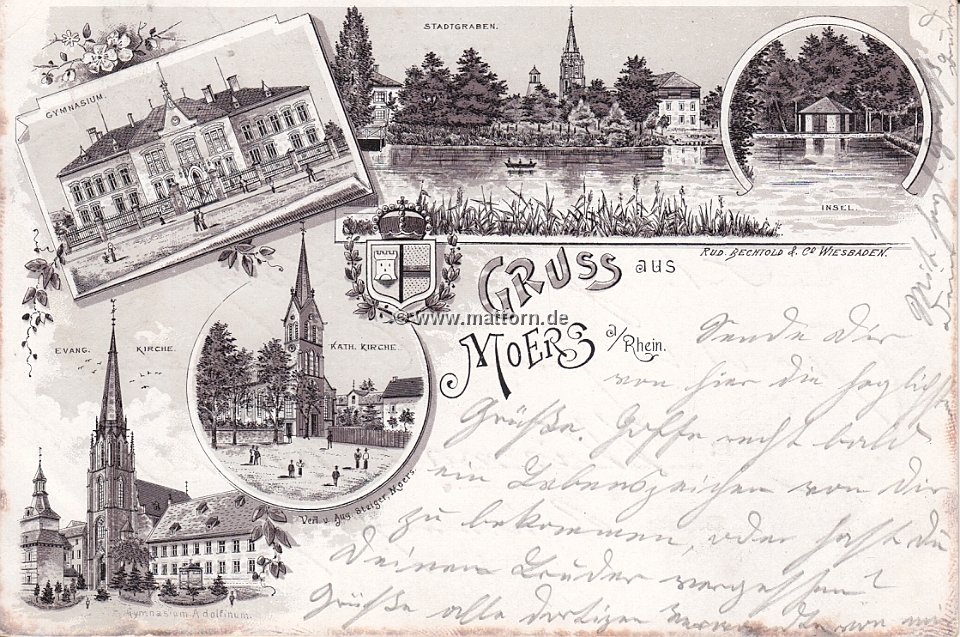 STADTGRABEN.
GYMNASIUM.
INSEL.
RUD. BECHTOLD & Cº WIESBADEN.
GRUSS aus
MOERS a/Rhein.
© www.mattorn.de
EVANG. KIRCHE.
KATH. KIRCHE.
Verl. v. Aug. Steiger, Moers.
Gymnasium Adolfinum.
Sende Dir
von hier die herzlichst
Grüße. Hoffe recht bald
ein Lebenszeichen von Dir
zu bekommen, oder hast Du
Deinen Bruder vergessen?
Grüße alle dortigen Verwandte von mir